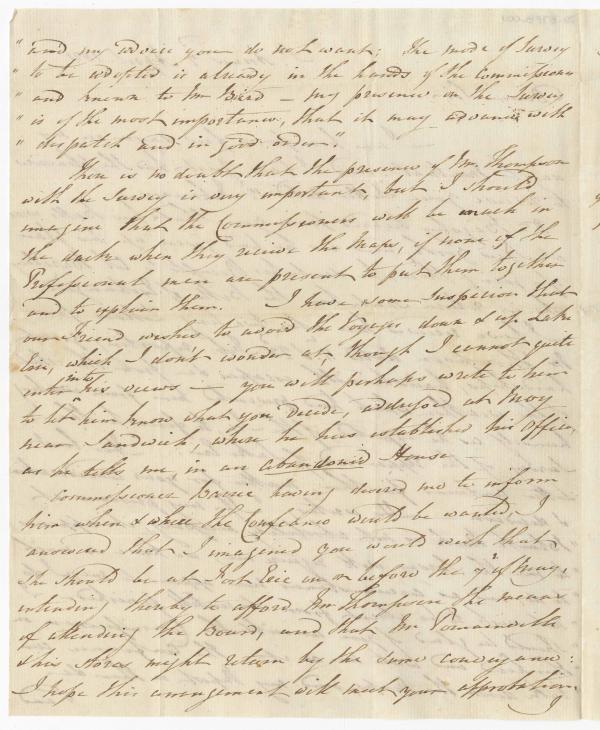 " and my advice you do not want; the mode of Survey
" to be adopted is already in the hands of the Commissioner
" and known to Mr Bird – my presence on the Survey
" is of the most importance, that it may advance with
" dispatch and in good order".
There is no doubt that the presence of Mr. Thompson
with the Survey is very important, but I should
imagine that the Commissioners will be much in
the dark when they receive the Maps, if none of the
Professional men are present to put them together
and to explain them. I have some Suspicion that
our Friend wishes to avoid the Voyages down & up Lake
Erie, which I don't wonder at though I cannot quite
enter into his views — you will perhaps write to him
to let him know what you decide, addressed at Moy
near Sandwich, where he has established his Office,
as he tells me, in an abandoned House –
Commissioner Barrie having desired me to inform
him when & where the Confiance would be wanted, I
answered that I imagined you would wish that
She should be at Fort Erie on or before the 7th of May,
intending thereby to afford Mr Thompson the means
of attending the Board, and that Mr
& his Stores might return by the same conveyance:
I hope this arrangement will meet your approbation